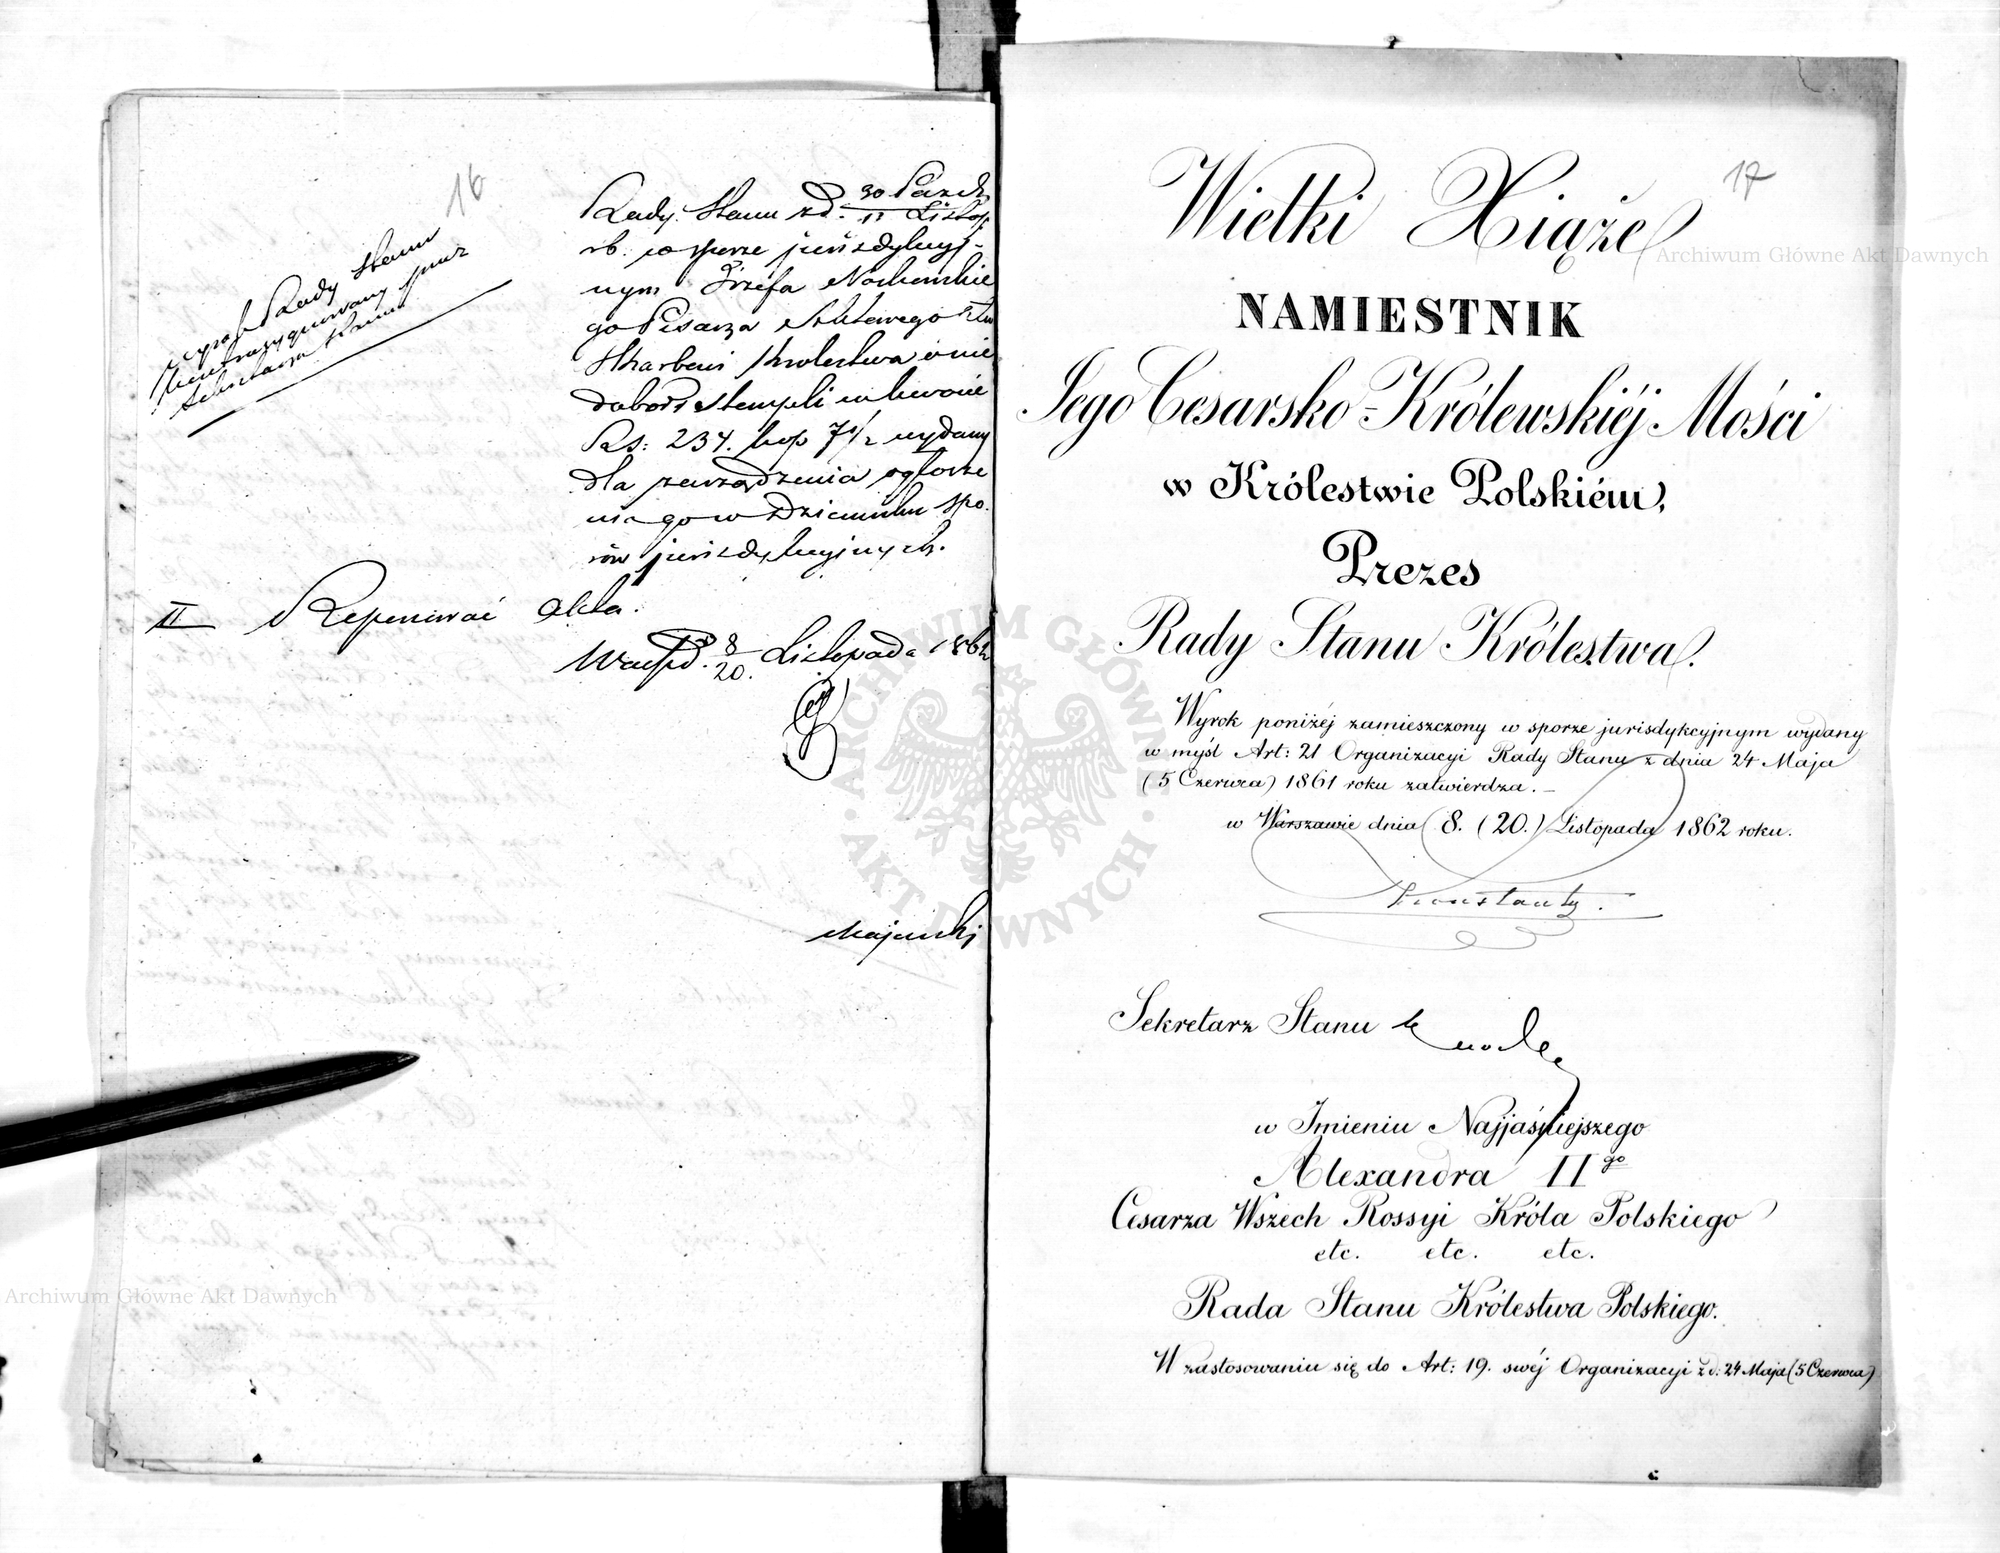 16
Wyrok Rady Stanu
kontrasygnowany przez
Sekretarza Stanu
Rady Stanu z d. 30 Paźdz
11 Listop
rb. w sporze jurisdykcyj-
nym Józefa
go Pisarza
Skarbem Królestwa o nie
dobór stempli w kwocie
Rs: 234. kop 7 1/2 wydany
dla zarządzenia ogłosze
nia go w Dzienniku spo-
rów jurisdykcyjnych.
II Reponować akta.
Warsz d. 8/20. Listopada 1862
Majewski
17
Wielki Xiąże
NAMIESTNIK
Jego Cesarsko-Królewskiéj Mości
w Królestwie Polskiém,
Prezes
Rady Stanu Królestwa.
Wyrok poniżéj zamieszczony w sporze jurisdykcyjnym wydany
w myśl Art: 21 Organizacyi Rady Stanu z dnia 24 Maja
(5 Czerwca) 1861 roku zatwierdza. —
w Warszawie dnia 8. (20.) Listopada 1862 roku.
Konstanty.
Sekretarz Stanu
w Imieniu Najjaśniejszego
Alexandra IIgo
Cesarza Wszech Rossyi Króla Polskiego
etc. etc. etc.
Rada Stanu Królestwa Polskiego.
W zastosowaniu się do Art: 19. swéj Organizacyi z d: 24 Maja (5 Czerwca)
Archiwum Główne Akt Dawnych
Archiwum Główne Akt Dawnych
ARCHIWUM GŁÓWNE
· AKT DAWNYCH ·